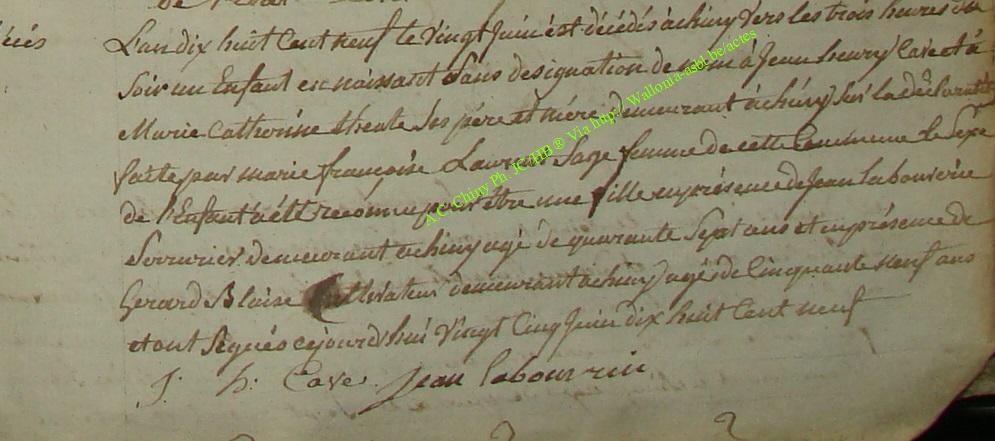 L'an dix huit Cent neuf le vingt Juin est décédés à chiny vers les trois heures du
Soir un Enfant en naissant Sans designation de nom à Jean henry Cave et à
Marie Catherine Ses père et mère demeurant à chiny Sur la déclaration
faite par marie françoise Laurent Sage femme de cette Commune le Sexe
de l'Enfant à été reconnu pour être une fille en présence de Jean labourerie
Serrurier demeurant à chiny agé de quarante Sept ans et en présence de
Gerard Blaise Cultivateur demeurant à chiny agés de Cinquante neuf ans
et ont Signés cejourd'hui vingt Cinq Juin dix huit Cent neuf
J. h. Cave. Jean labourrie
A.C. Chiny Ph. JC HB @ Via http://Wallonia-asbl.be/actes